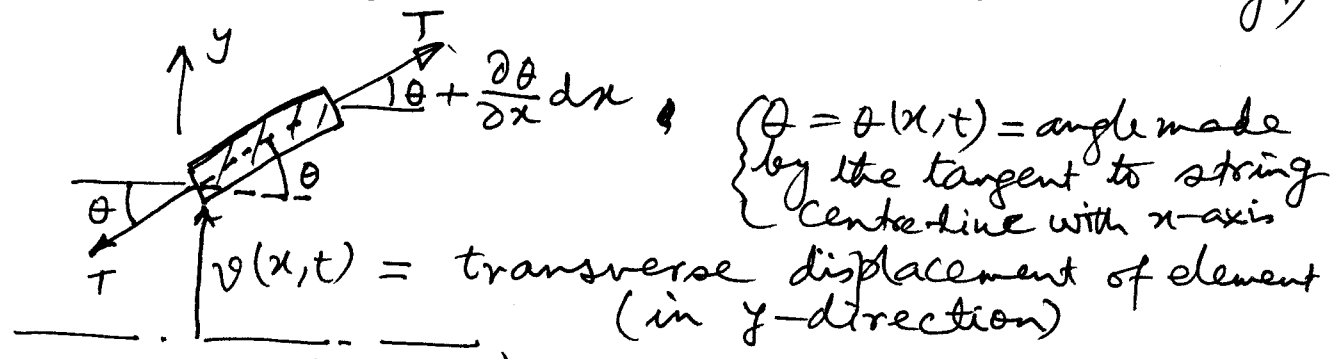 y
T
θ + ∂θ/∂x dx
θ
θ
T
{θ = θ(x,t) = angle made
by the tangent to string
centre-line with x-axis
v(x,t) = transverse displacement of element
(in y-direction)